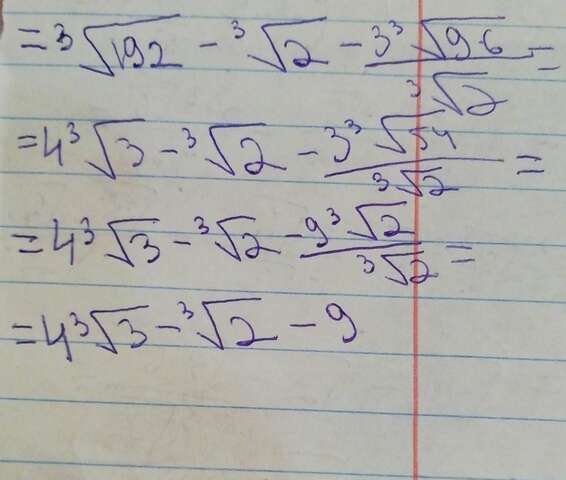 =³√192 - ³√2 - 3³√96/³√2 =
=4³√3 - ³√2 - 3³√54/³√2 =
=4³√3 - ³√2 - 9³√2/³√2 =
=4³√3 - ³√2 - 9